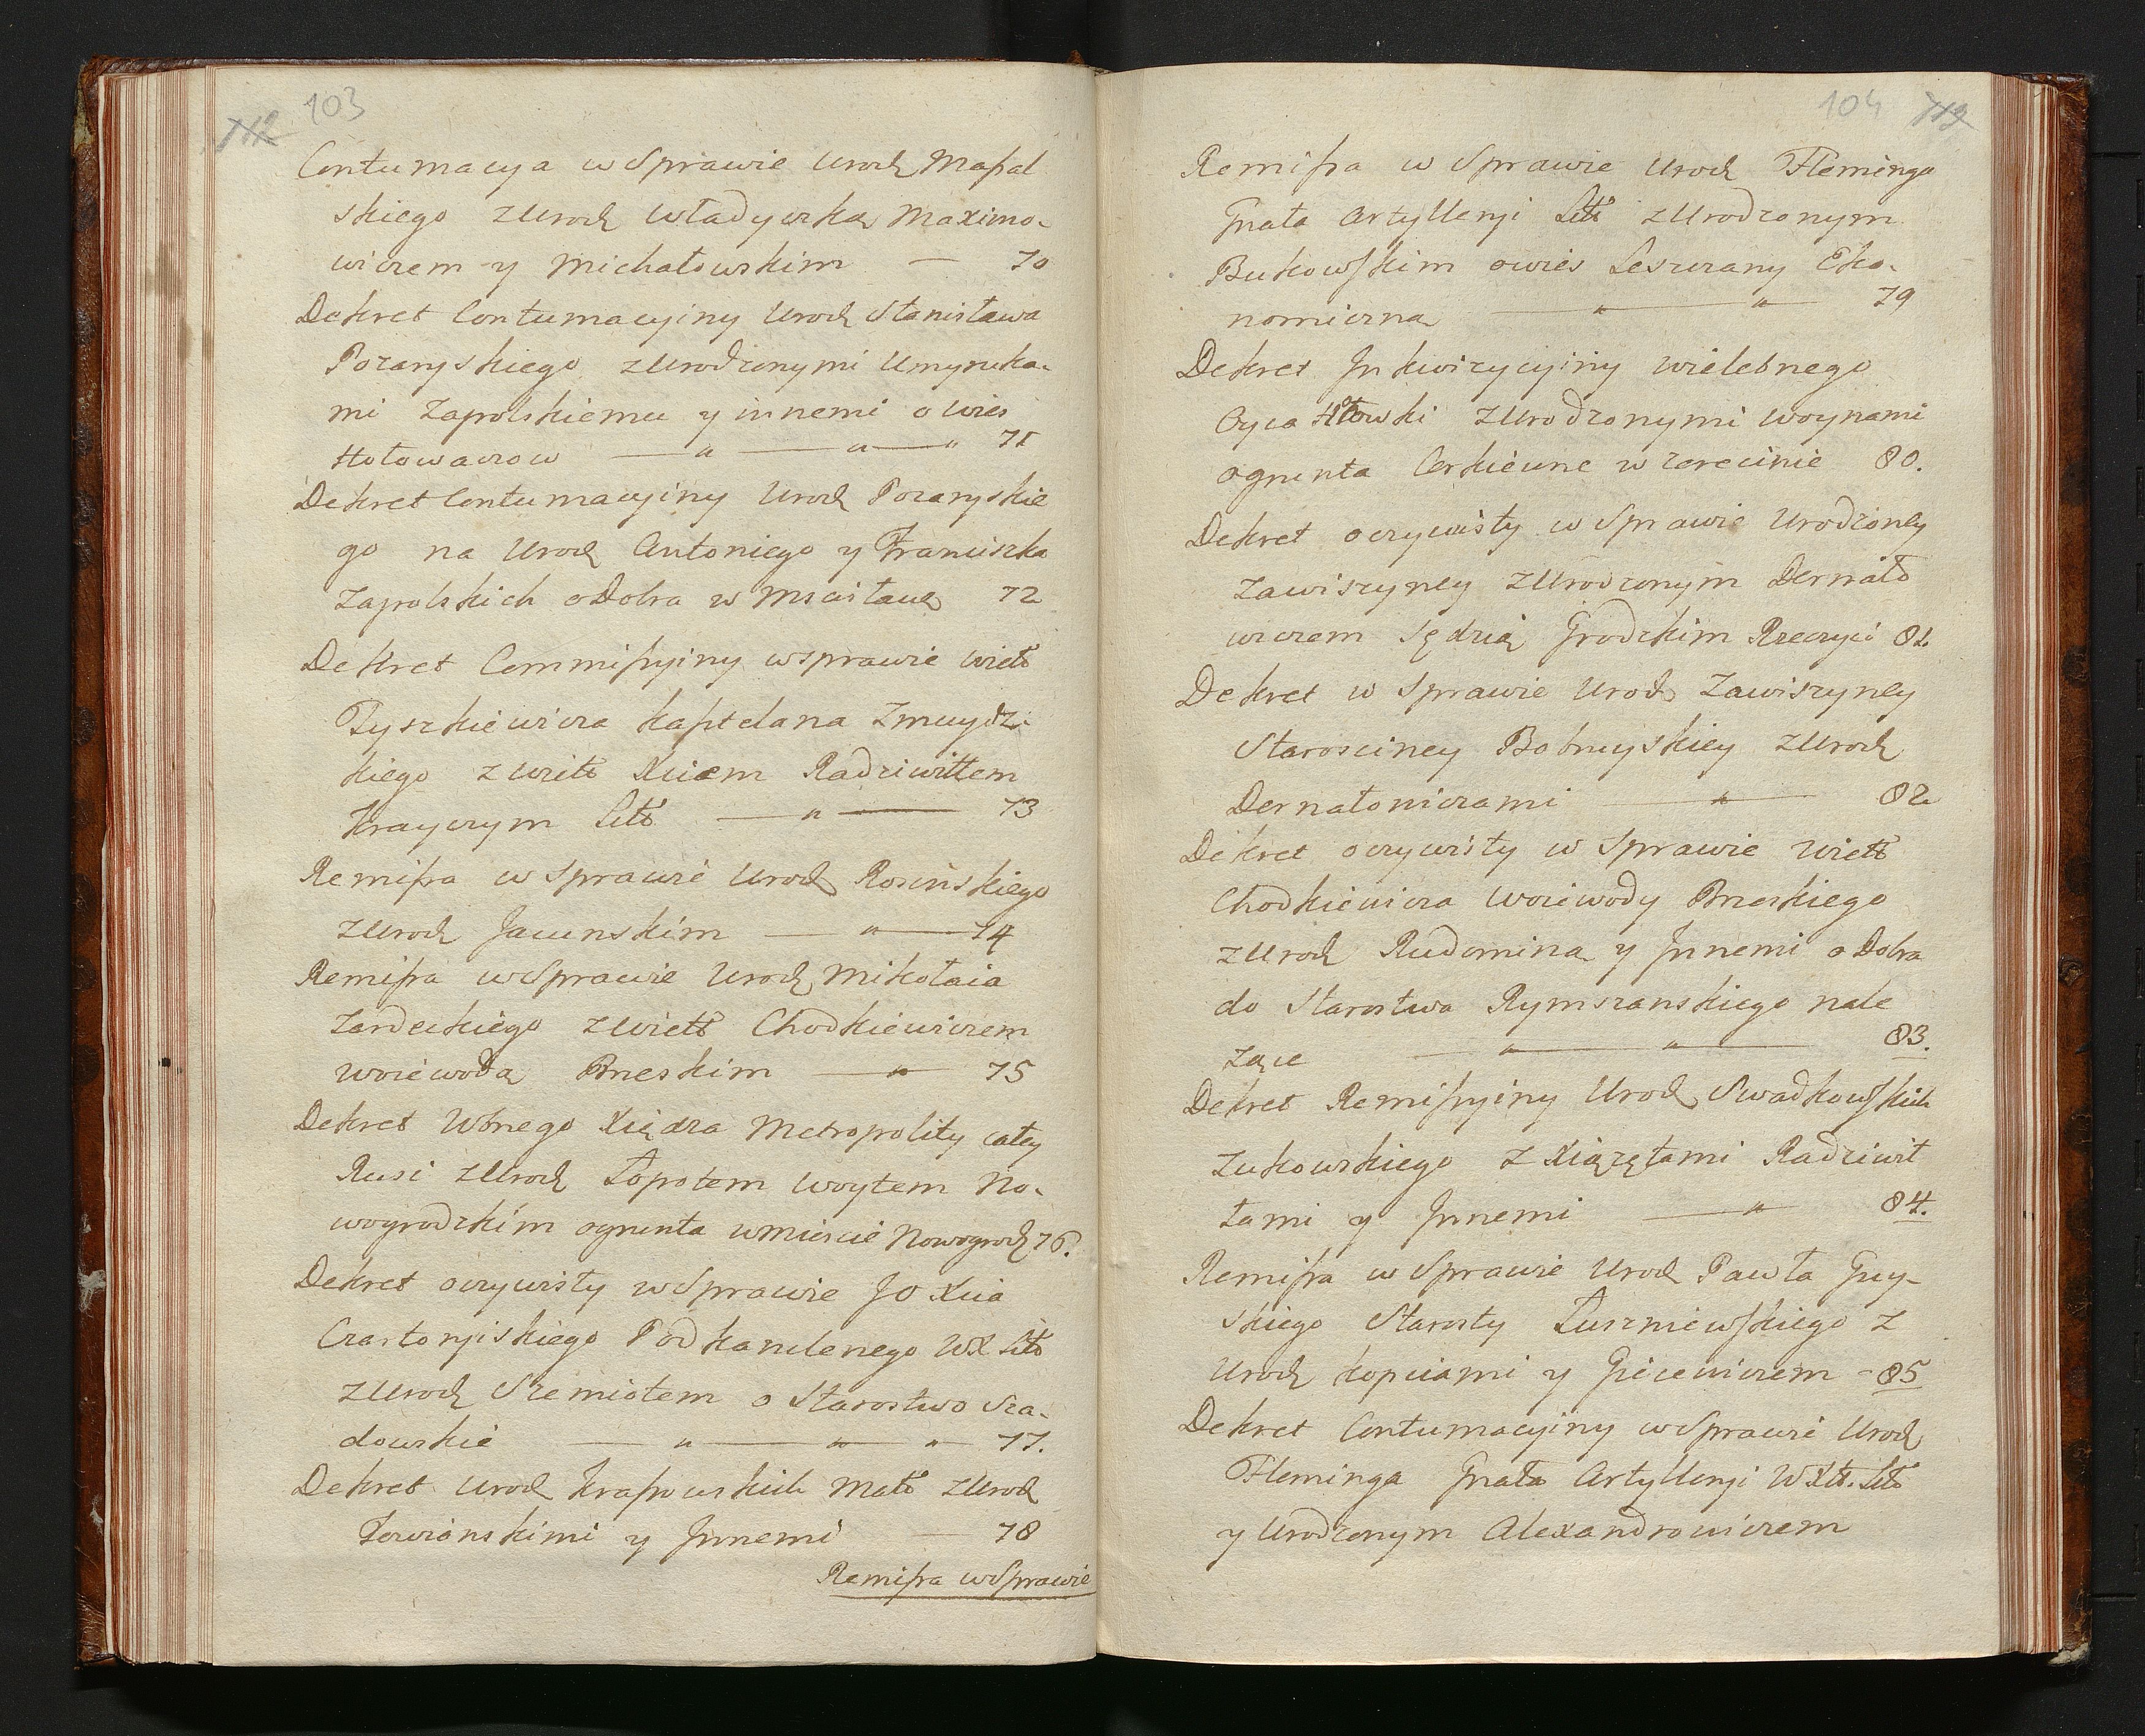 112 103
Contumacya w Sprawie Urodz Massal
skiego z Urodz Władyczką Maximo-
wiczem y Michałowskim — 70
Dekret Contumacyiny Urodz Stanisława
Pozaryskiego z Urodzonymi Umyncka-
mi Zapolskiemu y innemi o Wies
Hołowaczow — " — " — " 71
Dekret Contumacyiny Urodz Pozaryskie
go na Urodz Antoniego y Franciszka
Zapolskich o Dobra w Mscisławs 72
Dekret Commissyiny w sprawie wielo
Tyszkiewicza Kasztelana Zmuydz-
kiego z wielo Xciem Radziwiłłem
Krayczym Litt — " — 73
Remissa w Sprawie Urodz Rosinskiego
z Urodz Jacunskim — " — 74
Remissa w Sprawie Urodz Mikołaia
Zardeckiego z wielo Chodkiewiczem
woiewodą Brzeskim — " — 75
Dekret Wbnego Xiędza Metropolity całey
Rusi z Urodz Łopotem Woytem No-
wogrodzkim o grunta w miescie Nowogrodz 76.
Dekret oczywisty w Sprawie JO Xcia
Czartoryiskiego Podkanclerzego WX Litt
z Urodz Szemiotem o Starostwo Sza-
dowskie — " — " — " — 77.
Dekret Urodz Krassowskich Mało z Urod
Towianskimi y Jnnemi — 78
Remissa w Sprawie
104 113
Remissa w Sprawie Urodz Fleminga
Gnała Artylleryi Litt z Urodzonym
Bukowskim o wies Leszczany Eko-
nomiczną — " — " — 79
Dekret Jnkwizycyiny wielebnego
Oyca z Urodzonymi Woynami
o grunta Cerkiewne w Zerecinie 80.
Dekret oczywisty w Sprawie Urodzoney
Zawiszyney z Urodzonym Dernało
wiczem Sędzią Grodzkim Rzeczyc 81.
Dekret w Sprawie Urodz Zawiszyney
Starosciney Bobruyskiey z Urodz
Dernałowiczami — " — 82
Dekret oczywisty w Sprawie wielo
Chodkiewicza Woiewody Brzeskiego
z Urodz Rudomina y Jnnemi o Dobra
do Starostwa Rymszanskiego nale
zące — " — " — 83.
Dekret Remissyiny Urodz Swadkowskich
Zukowskiego z Xiążętami Radziwił
łami y Jnnemi — " — 84.
Remissa w Sprawie Urodz Pawła Guy-
skiego Starosty Łuszniewskiego z
Urodz Kopciami y Giecewiczem - 85
Dekret Contumacyiny w Sprawie Urodz
Fleminga Gnała Artylleryi W Xtt. Litt
y Urodzonym Alexandrowiczem